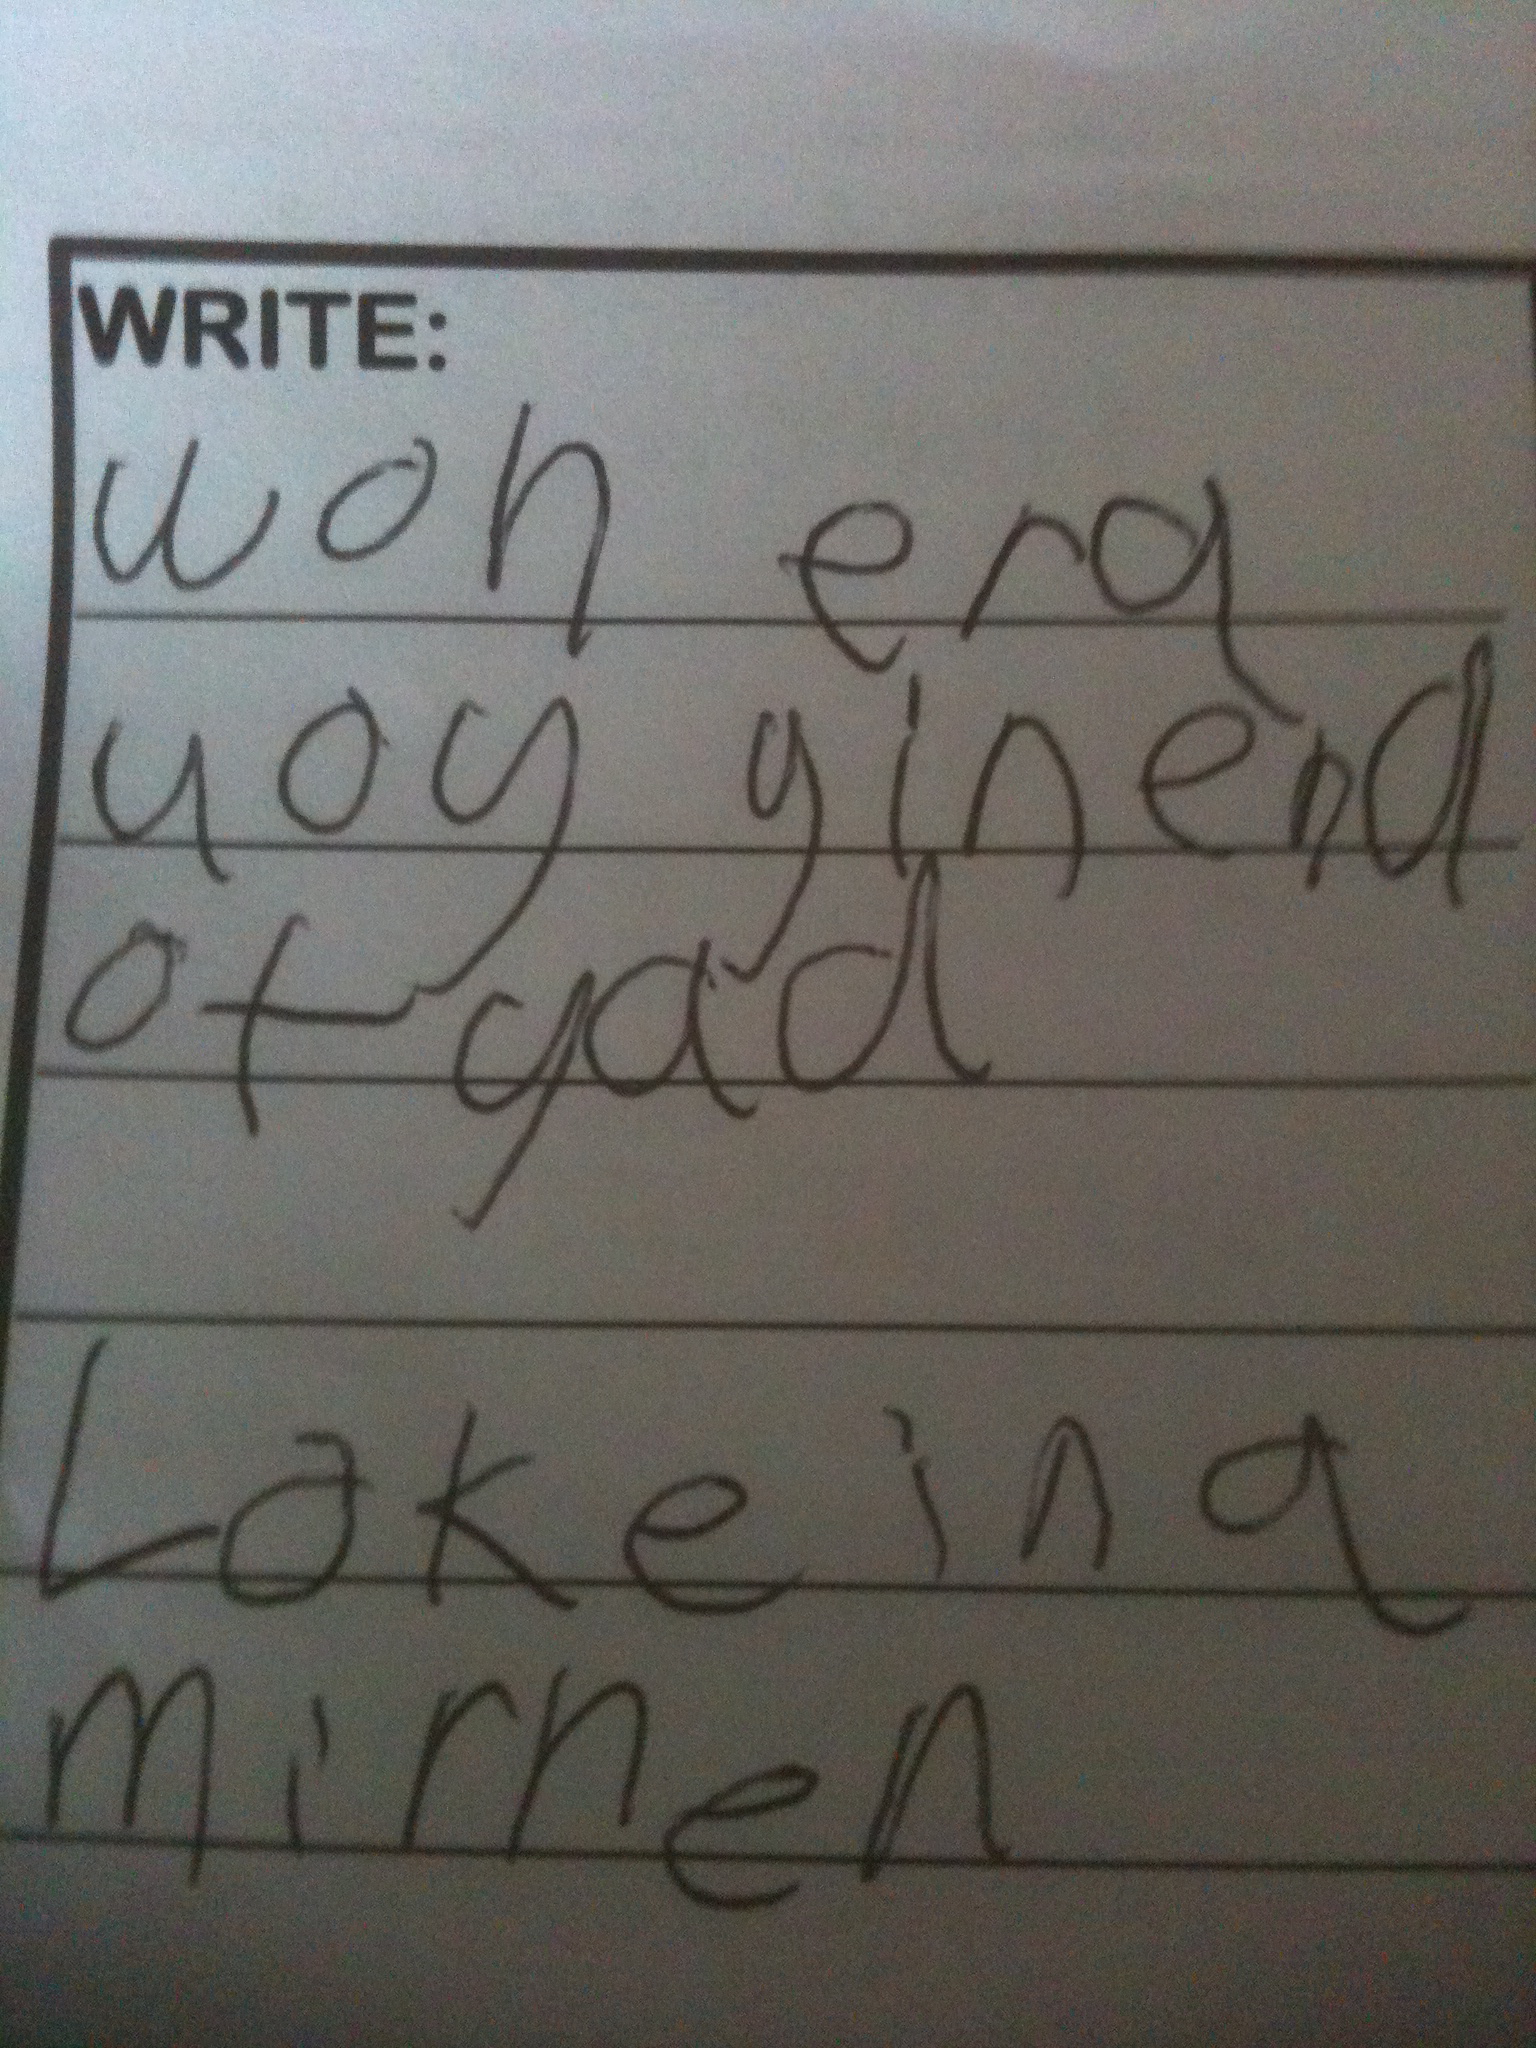 WRITE:
woh era
uoy ginend
ot yad
Lake in a
mirnen